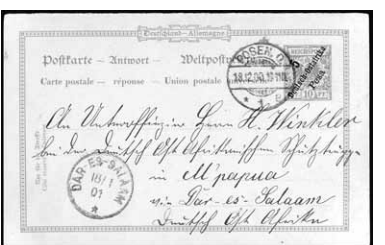 Deutschland — Allemagne
Postkarte — Antwort — Weltpost
Carte postale — réponse — Union postale
POSEN O.
18.12.00
* 1
Deutsch-Ostafrika
5 Pesa
10 PF
An Unteroffizier Herrn H. Winkler
bei der Deutsch Ost Afrikanischen Schutztruppe
in M'papua
via Dar-es-Salaam
Deutsch Ost Afrika
DAR-ES-SALAAM
18/1
01
*